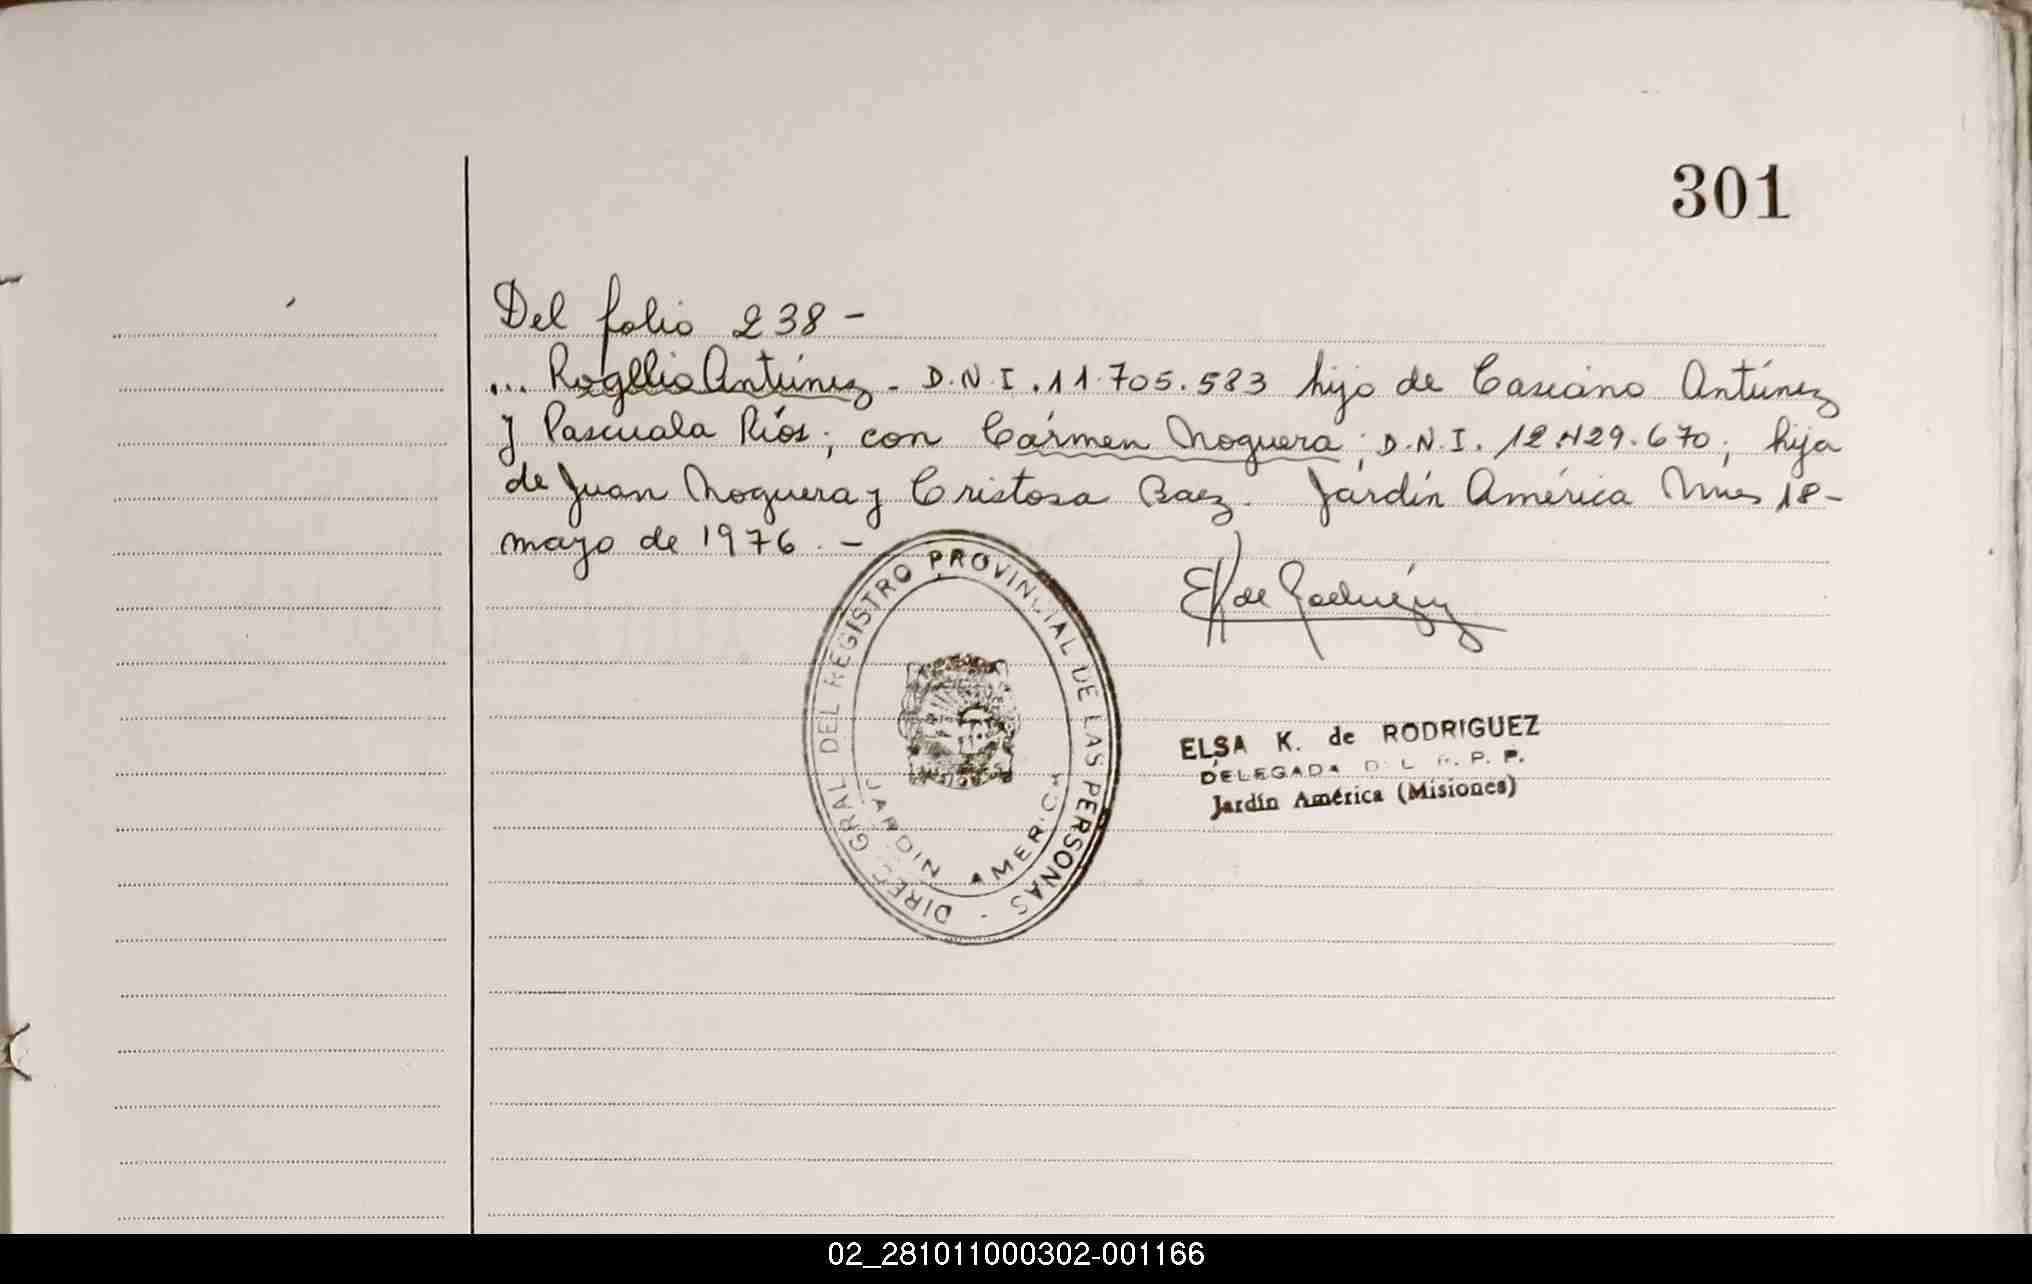 301
Del folio 238 -
... Rogelio Antúnez - D.N.I. 11.705.583 hijo de Casiano Antúnez
y Pascuala Ríos; con Cármen Noguera; D.N.I. 12.429.670; hija
de Juan Noguera y Cristosa Baez. Jardín América Mnes 18-
mayo de 1976. -
E K de Rodriguez
DIREC. GRAL DEL REGISTRO PROVINCIAL DE LAS PERSONAS -
JARDIN AMERICA
ELSA K. de RODRIGUEZ
DELEGADA R. P. P.
Jardín América (Misiones)
02_281011000302-001166